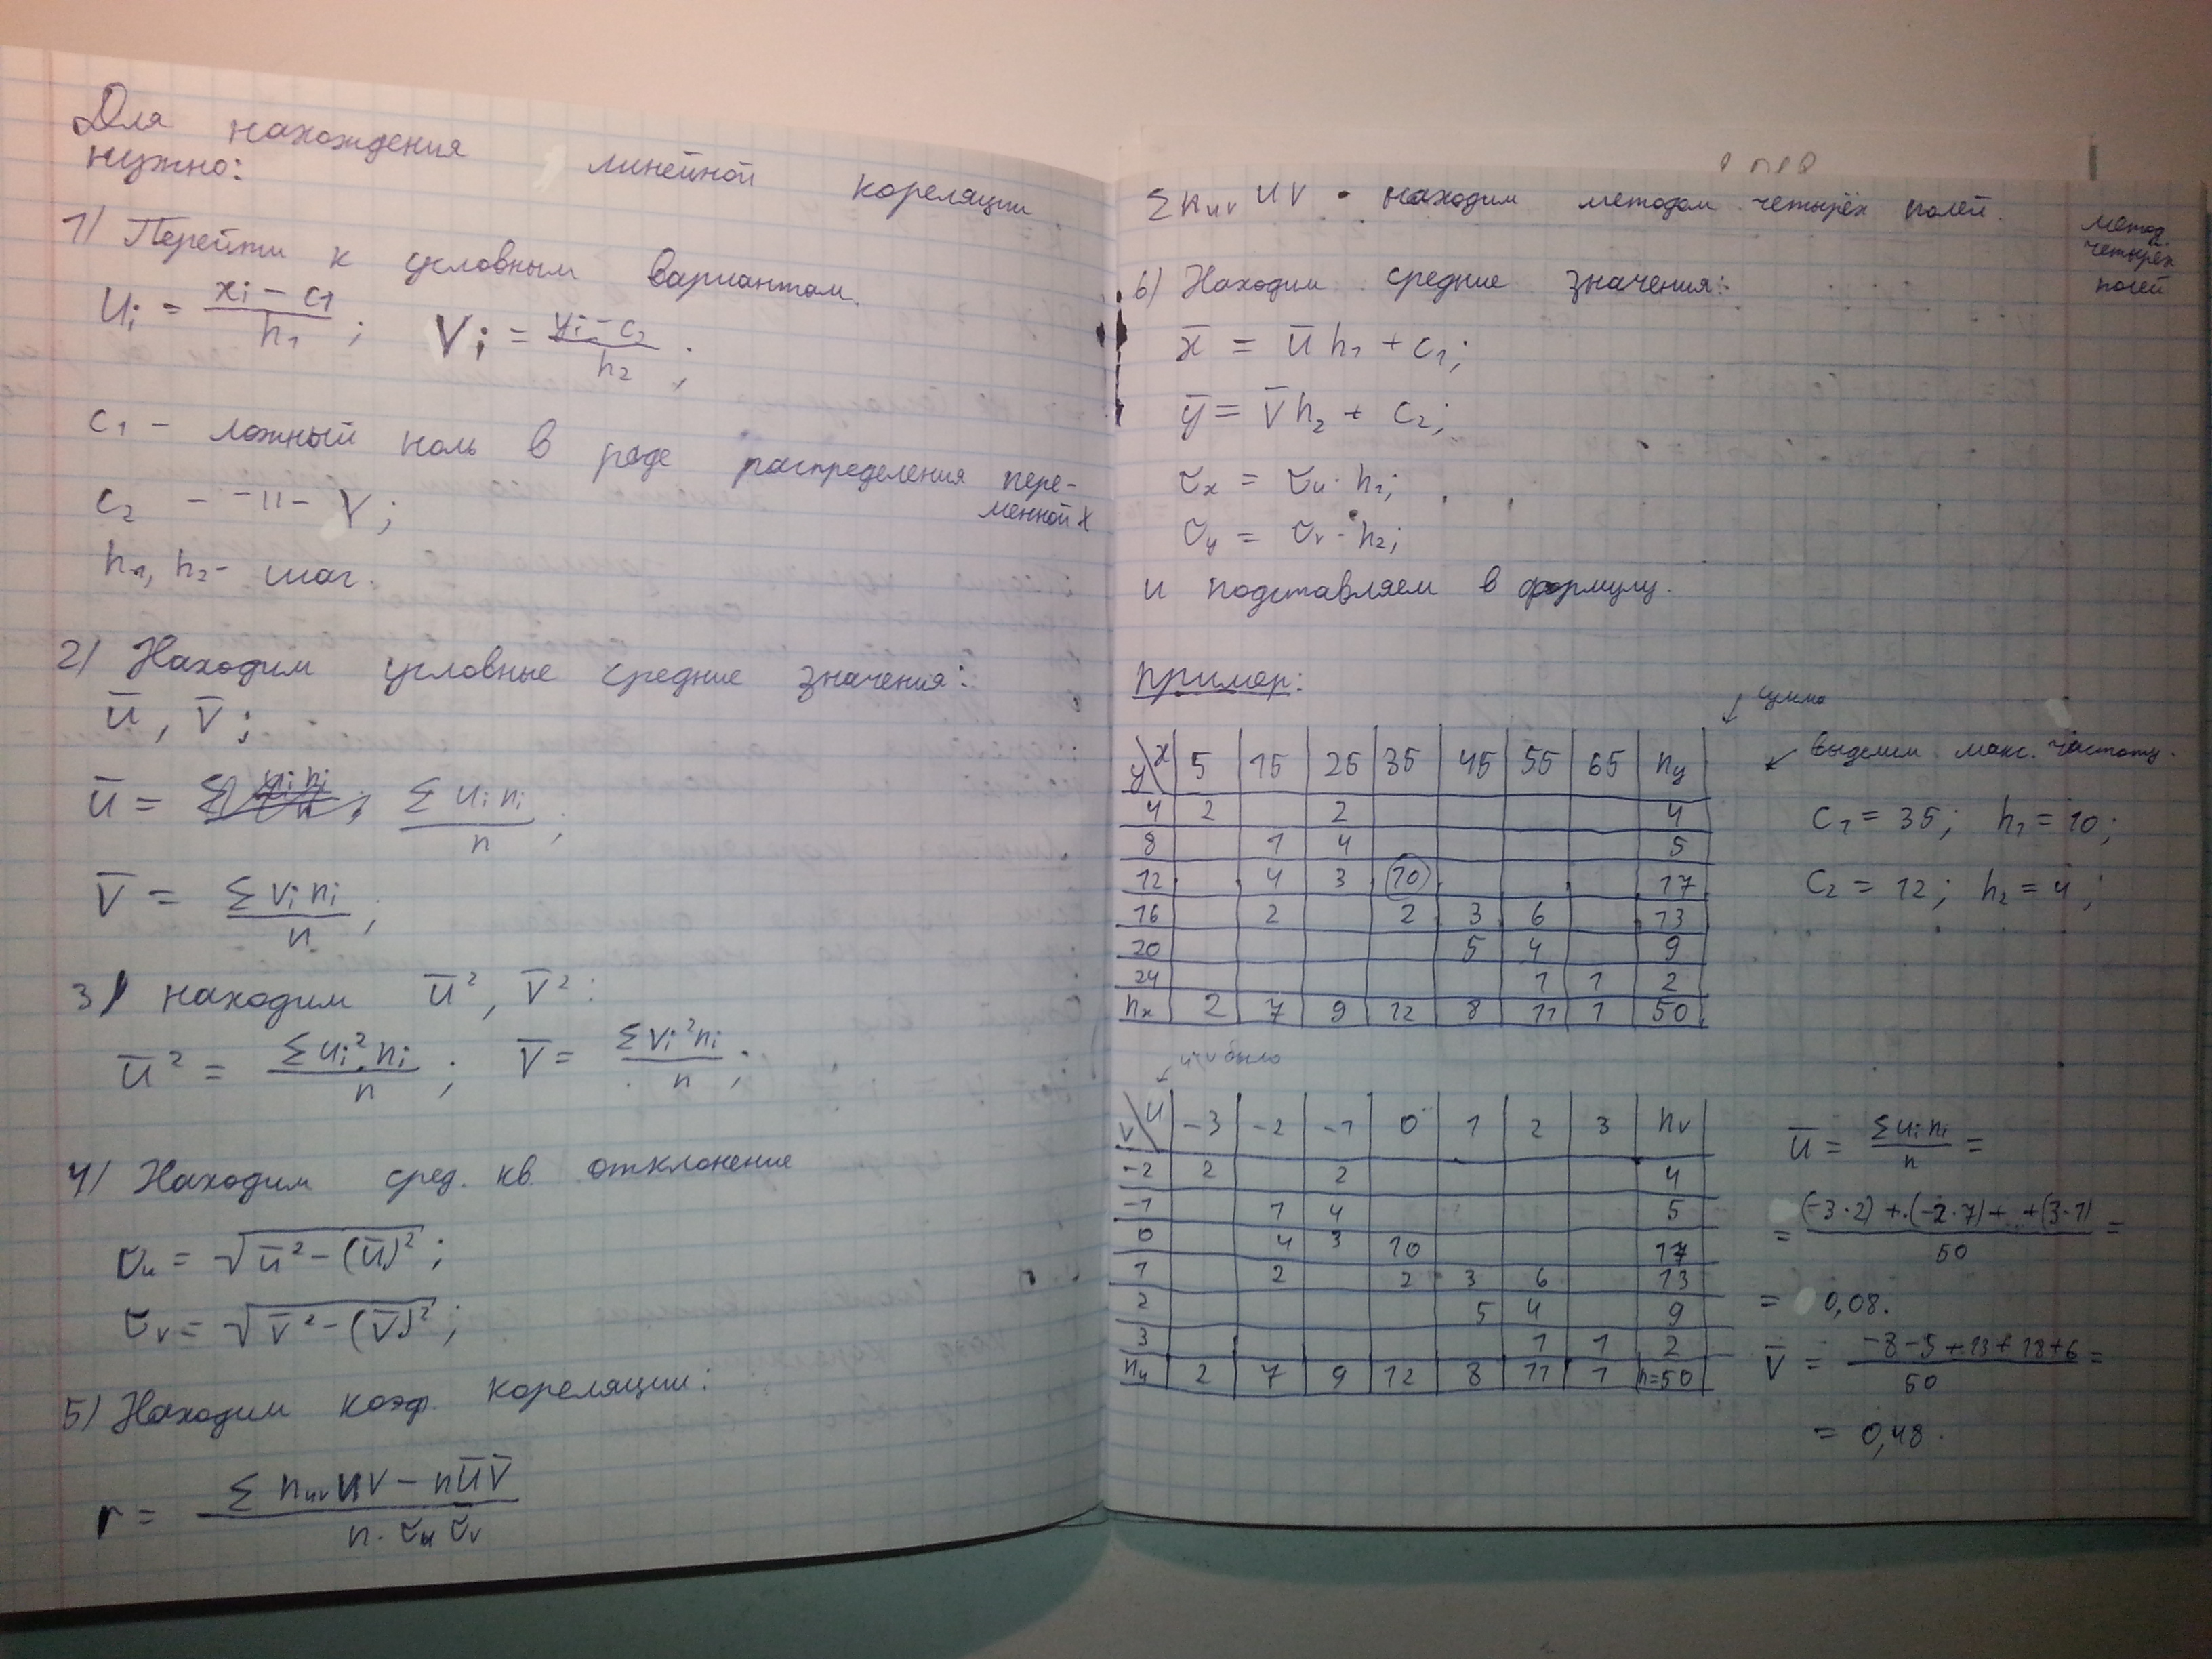 Для нахождения линейной кореляции
нужно:
1) Перейти к условным вариантам.
Ui = (xi − c1)/h1; Vi = (yi − c2)/h2;
c1 − ложный ноль в ряде распределения пере-
менной X
c2 − −"− Y;
h1, h2 − шаг.
2) Находим условные средние значения:
u̅, v̅;
u̅ = Σ ui ni / n;
V̅ = Σ Vi ni / n;
3) находим u̅², v̅²:
u̅² = Σ ui² ni / n; V̅ = Σ Vi² ni / n;
4) Находим сред. кв. отклонение
σu = √(u̅² − (u̅)²);
σv = √(v̅² − (v̅)²);
5) Находим коэф. кореляции:
r = (Σ nuv uv − n u̅ v̅) / (n · σu σv)
Σ nuv UV · находим методом четырёх полей.
метод
четырёх
полей
6) Находим средние значения:
x̅ = u̅ h1 + c1;
y̅ = v̅ h2 + c2;
σx = σu · h1;
σy = σv · h2;
и подставляем в формулу.
пример:
сумма
y\x 5 15 25 35 45 55 65 ny
4 2 2 4
8 1 4 5
12 4 3 10 17
16 2 2 3 6 13
20 5 4 9
24 1 1 2
nx 2 7 9 12 8 11 1 50
выделим макс. частоту.
c1 = 35; h1 = 10;
c2 = 12; h2 = 4;
v\u −3 −2 −1 0 1 2 3 nv
−2 2 2 4
−1 1 4 5
0 4 3 10 17
1 2 2 3 6 13
2 5 4 9
3 1 1 2
nu 2 7 9 12 8 11 1 n=50
u̅ = Σ ui ni / n =
= ((−3·2) + (−2·7) + ... + (3·1)) / 50 =
= 0,08.
V̅ = (−8 − 5 + 13 + 18 + 6) / 50 =
= 0,48.